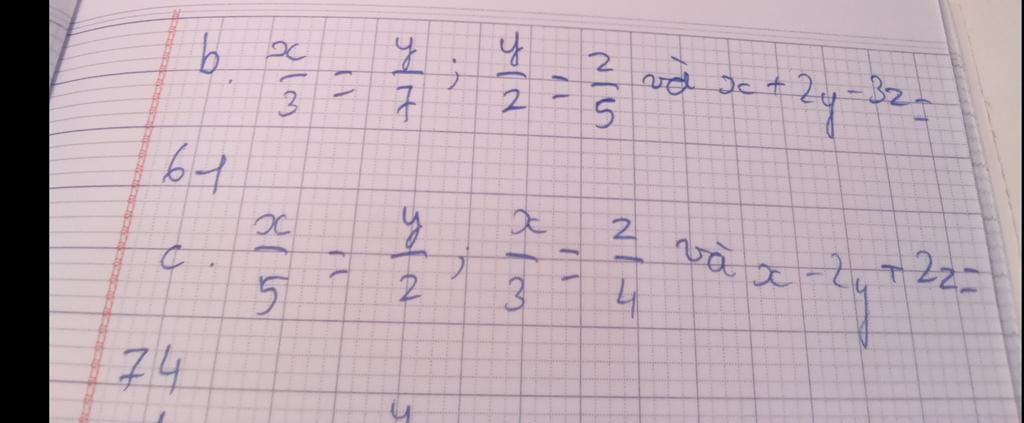 b. x/3 = y/7 ; y/2 = z/5 và x + 2y - 3z =
61
c. x/5 = y/2 ; x/3 = z/4 và x - 2y + 2z =
74